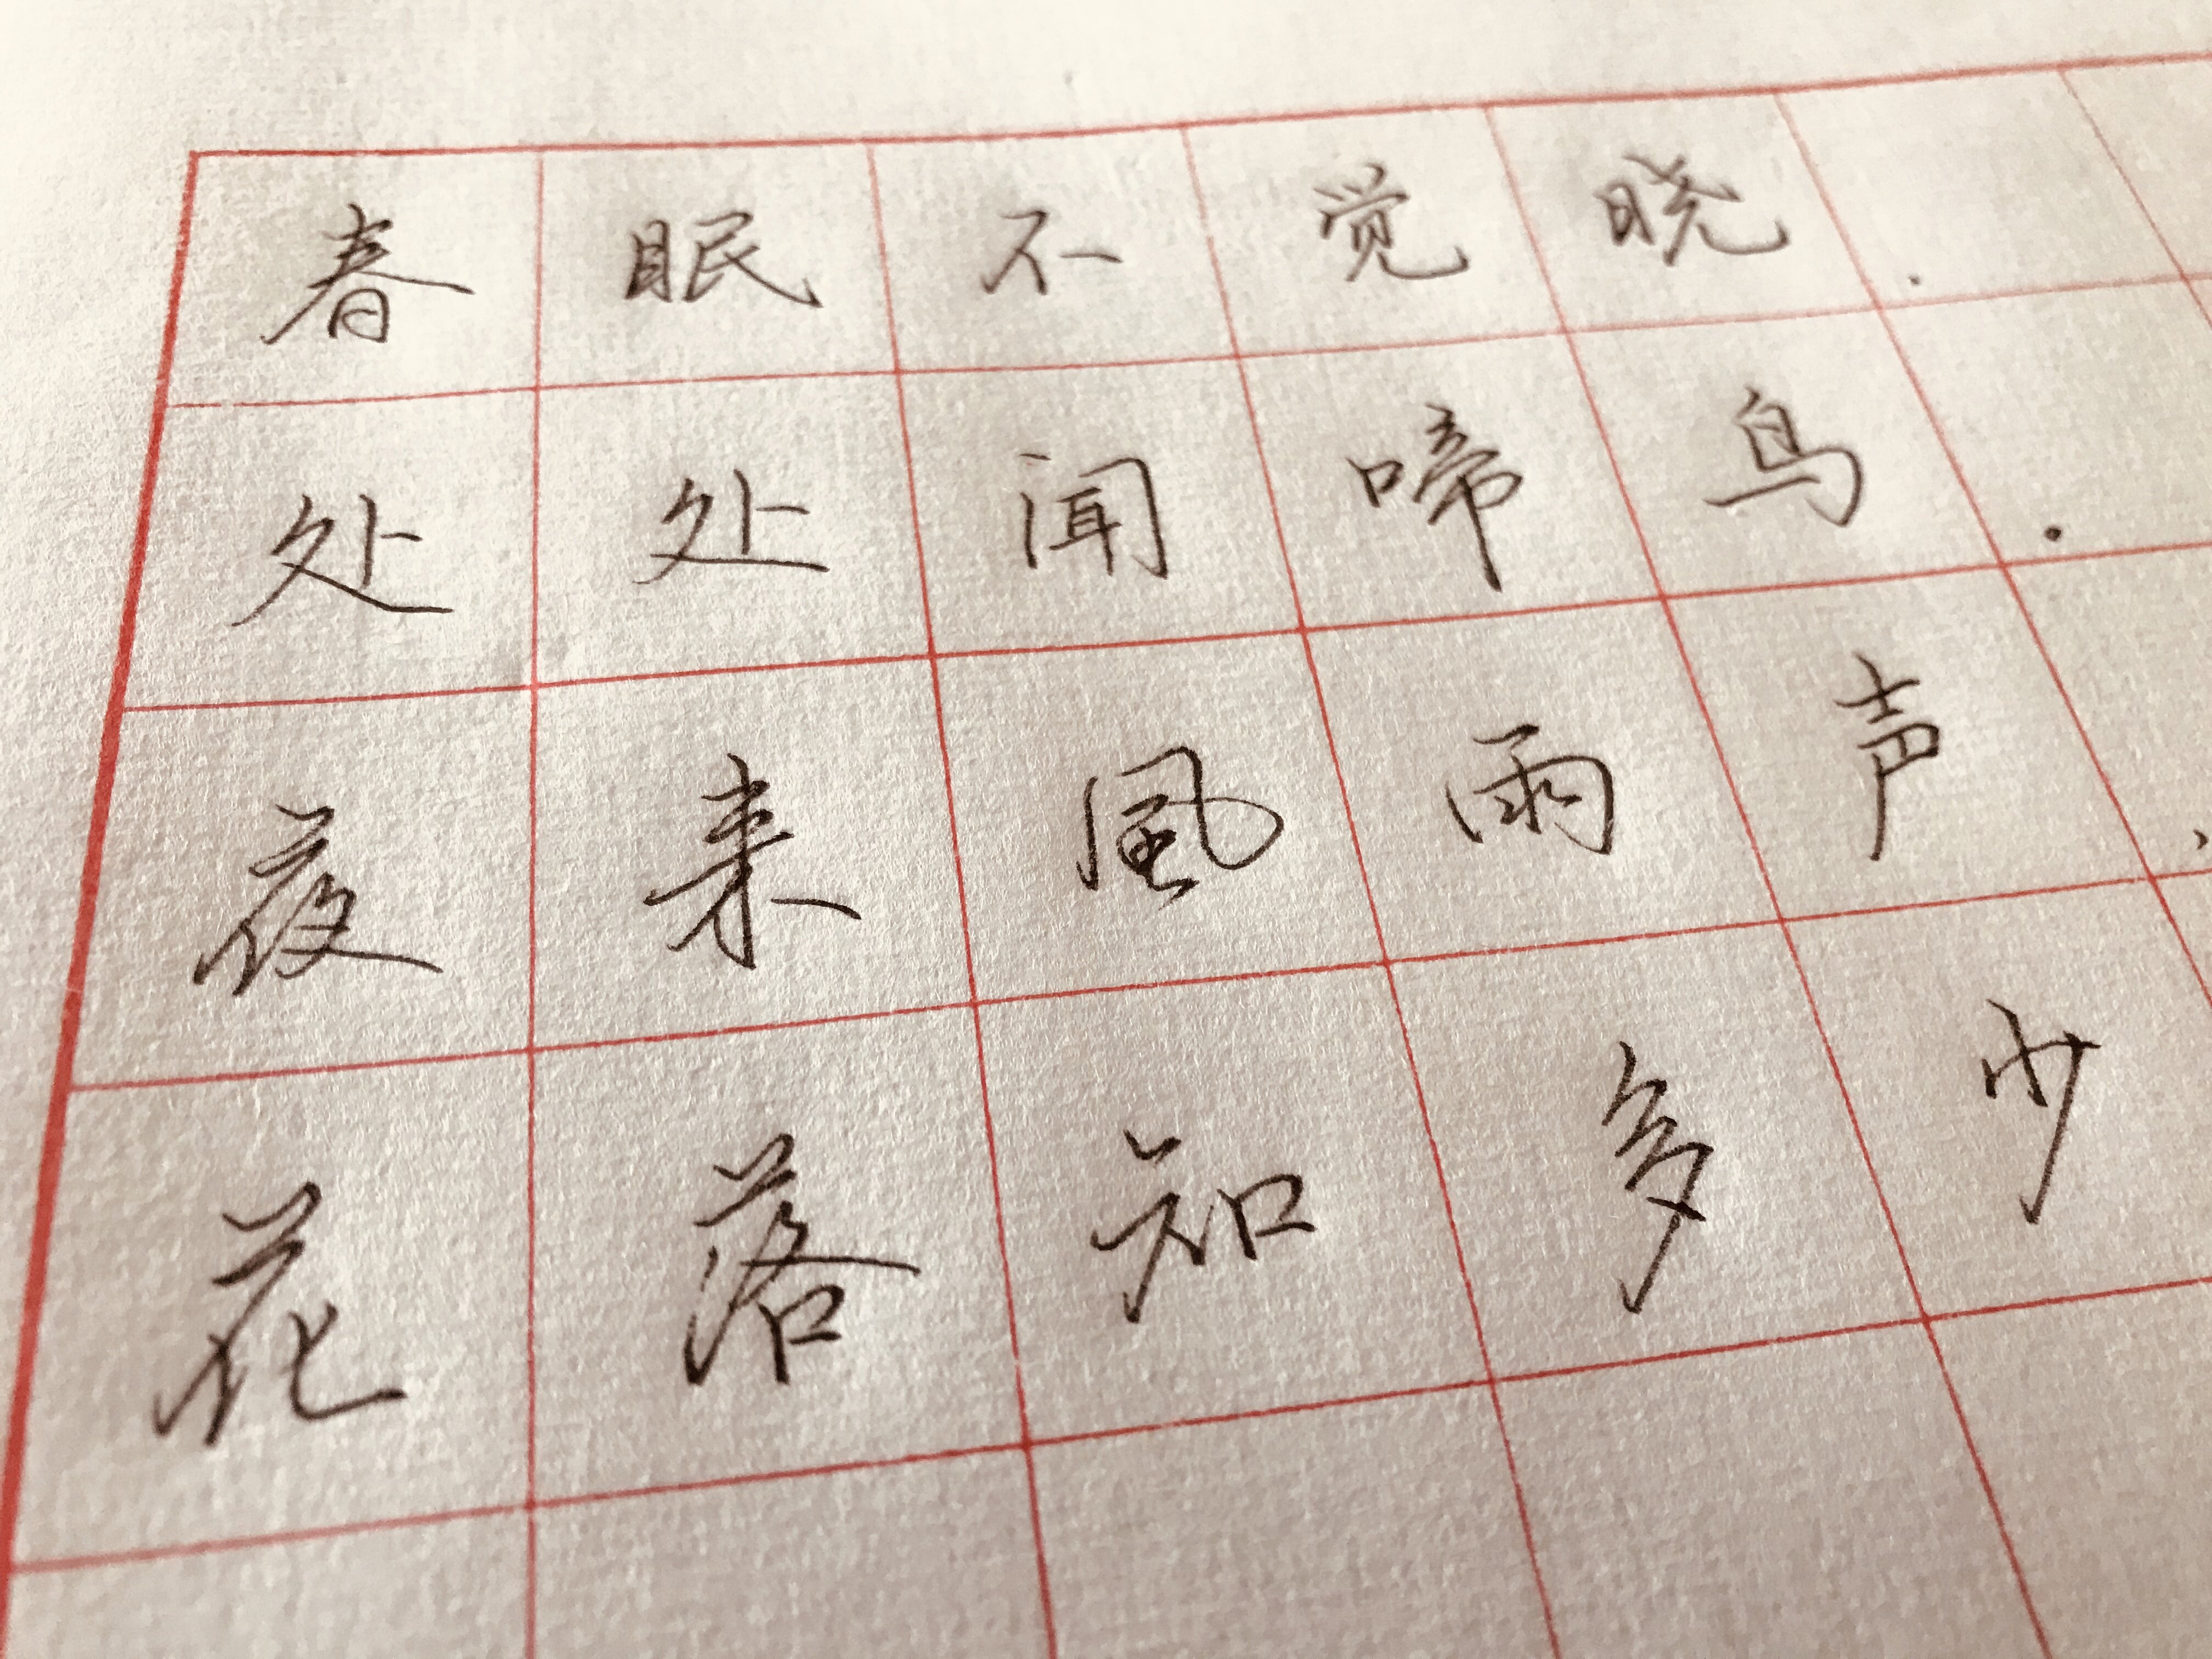 春眠不觉晓.
处处闻啼鸟.
夜来風雨声、
花落知多少